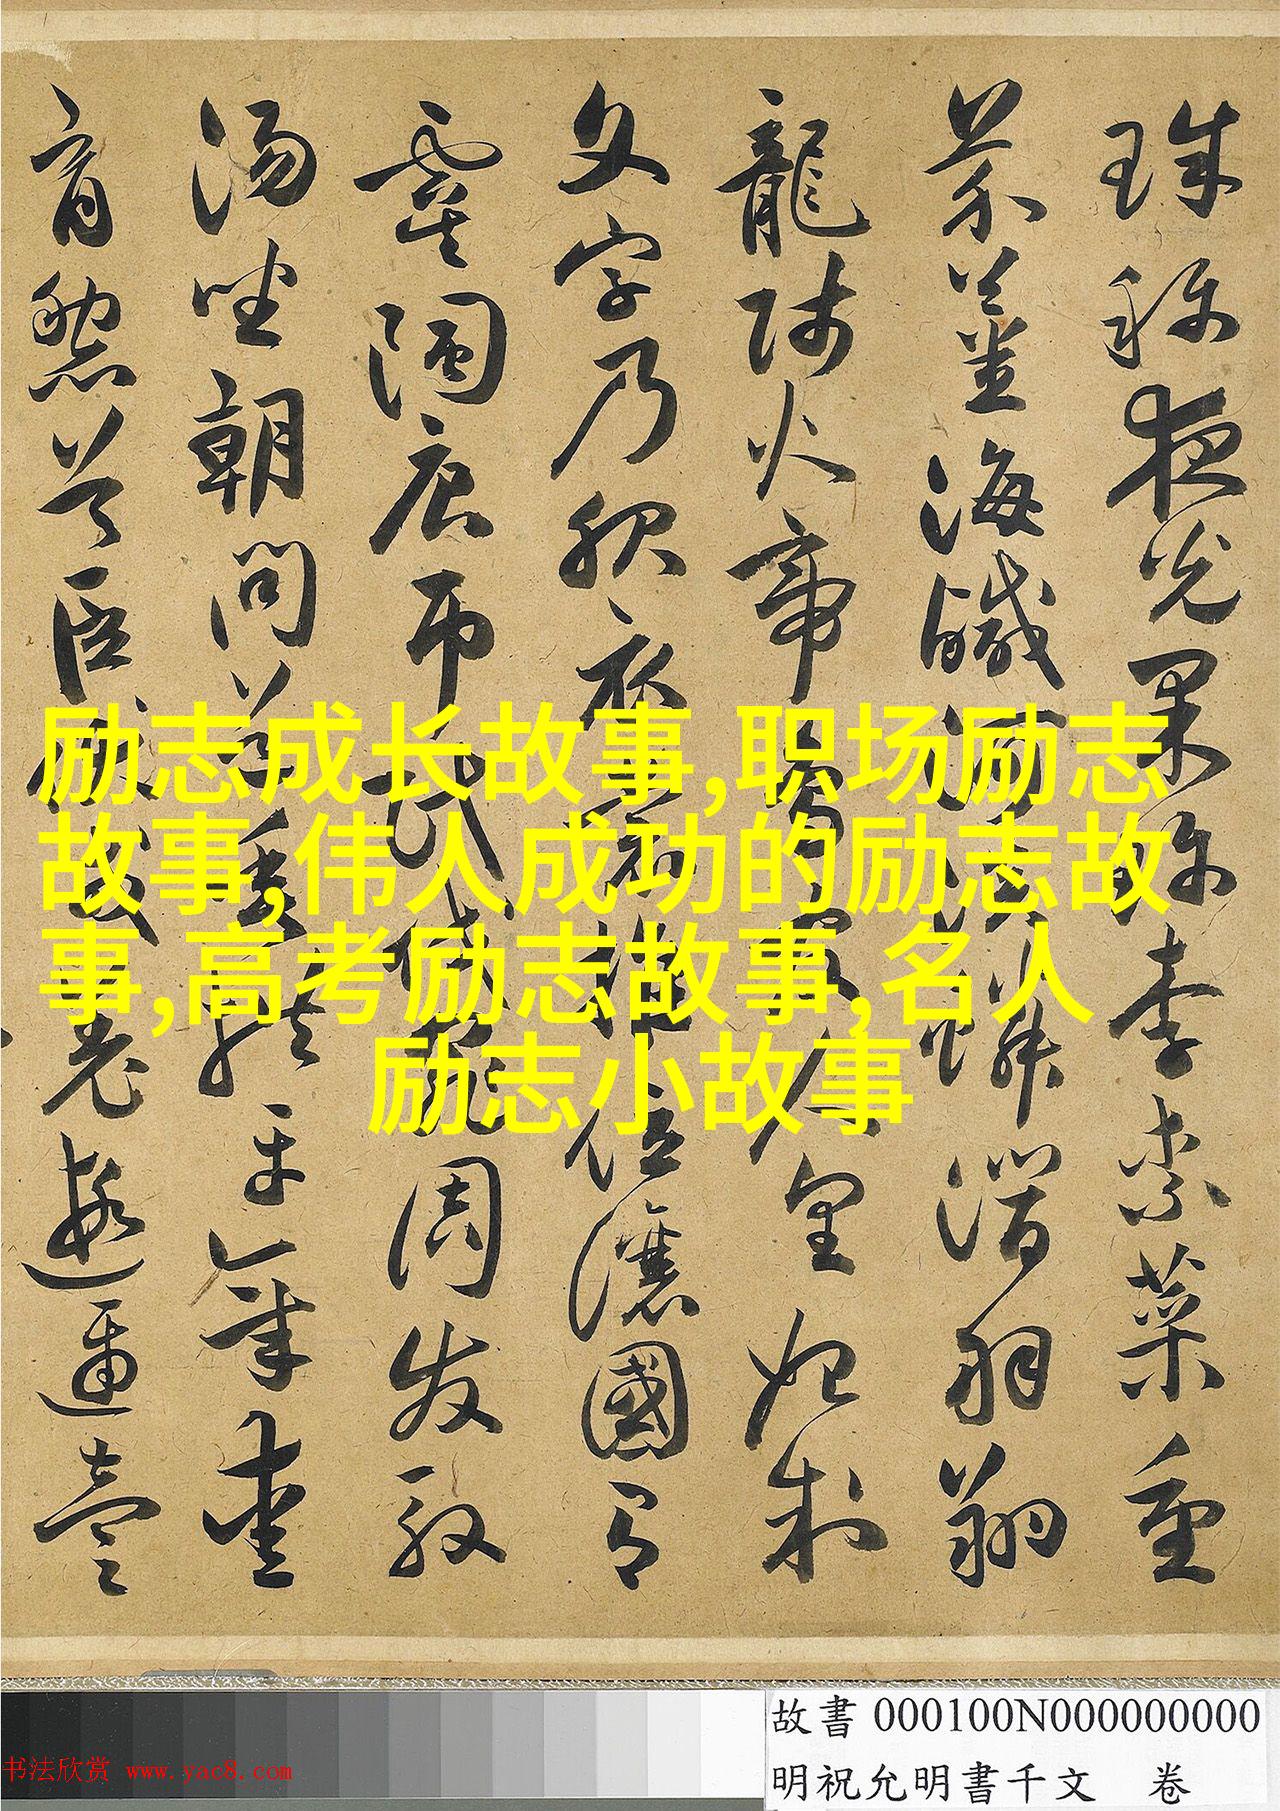 珠称夜光果珍李柰菜重
芥薑海鹹河淡鳞潜羽翔
龍師火帝鳥官人皇始制
文字乃服衣裳推位讓國有
虞陶唐弔民伐罪周发殷
湯坐朝問道垂拱平章愛
育黎首臣伏戎羌遐邇壹
励志成长故事,职场励志
故事,伟人成功的励志故
事,高考励志故事,名人
励志小故事
故書 000100N000000000
明祝允明書千文 卷
书法欣赏 www.yac8.com